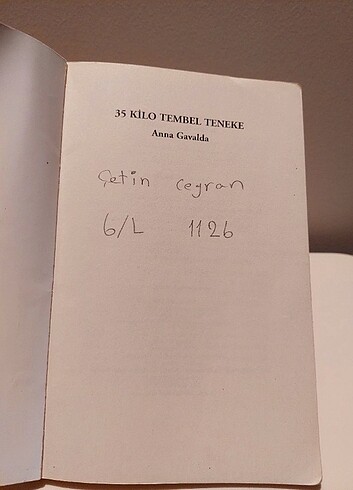 35 KİLO TEMBEL TENEKE
Anna Gavalda
Çetin ceyran
6/L 1126